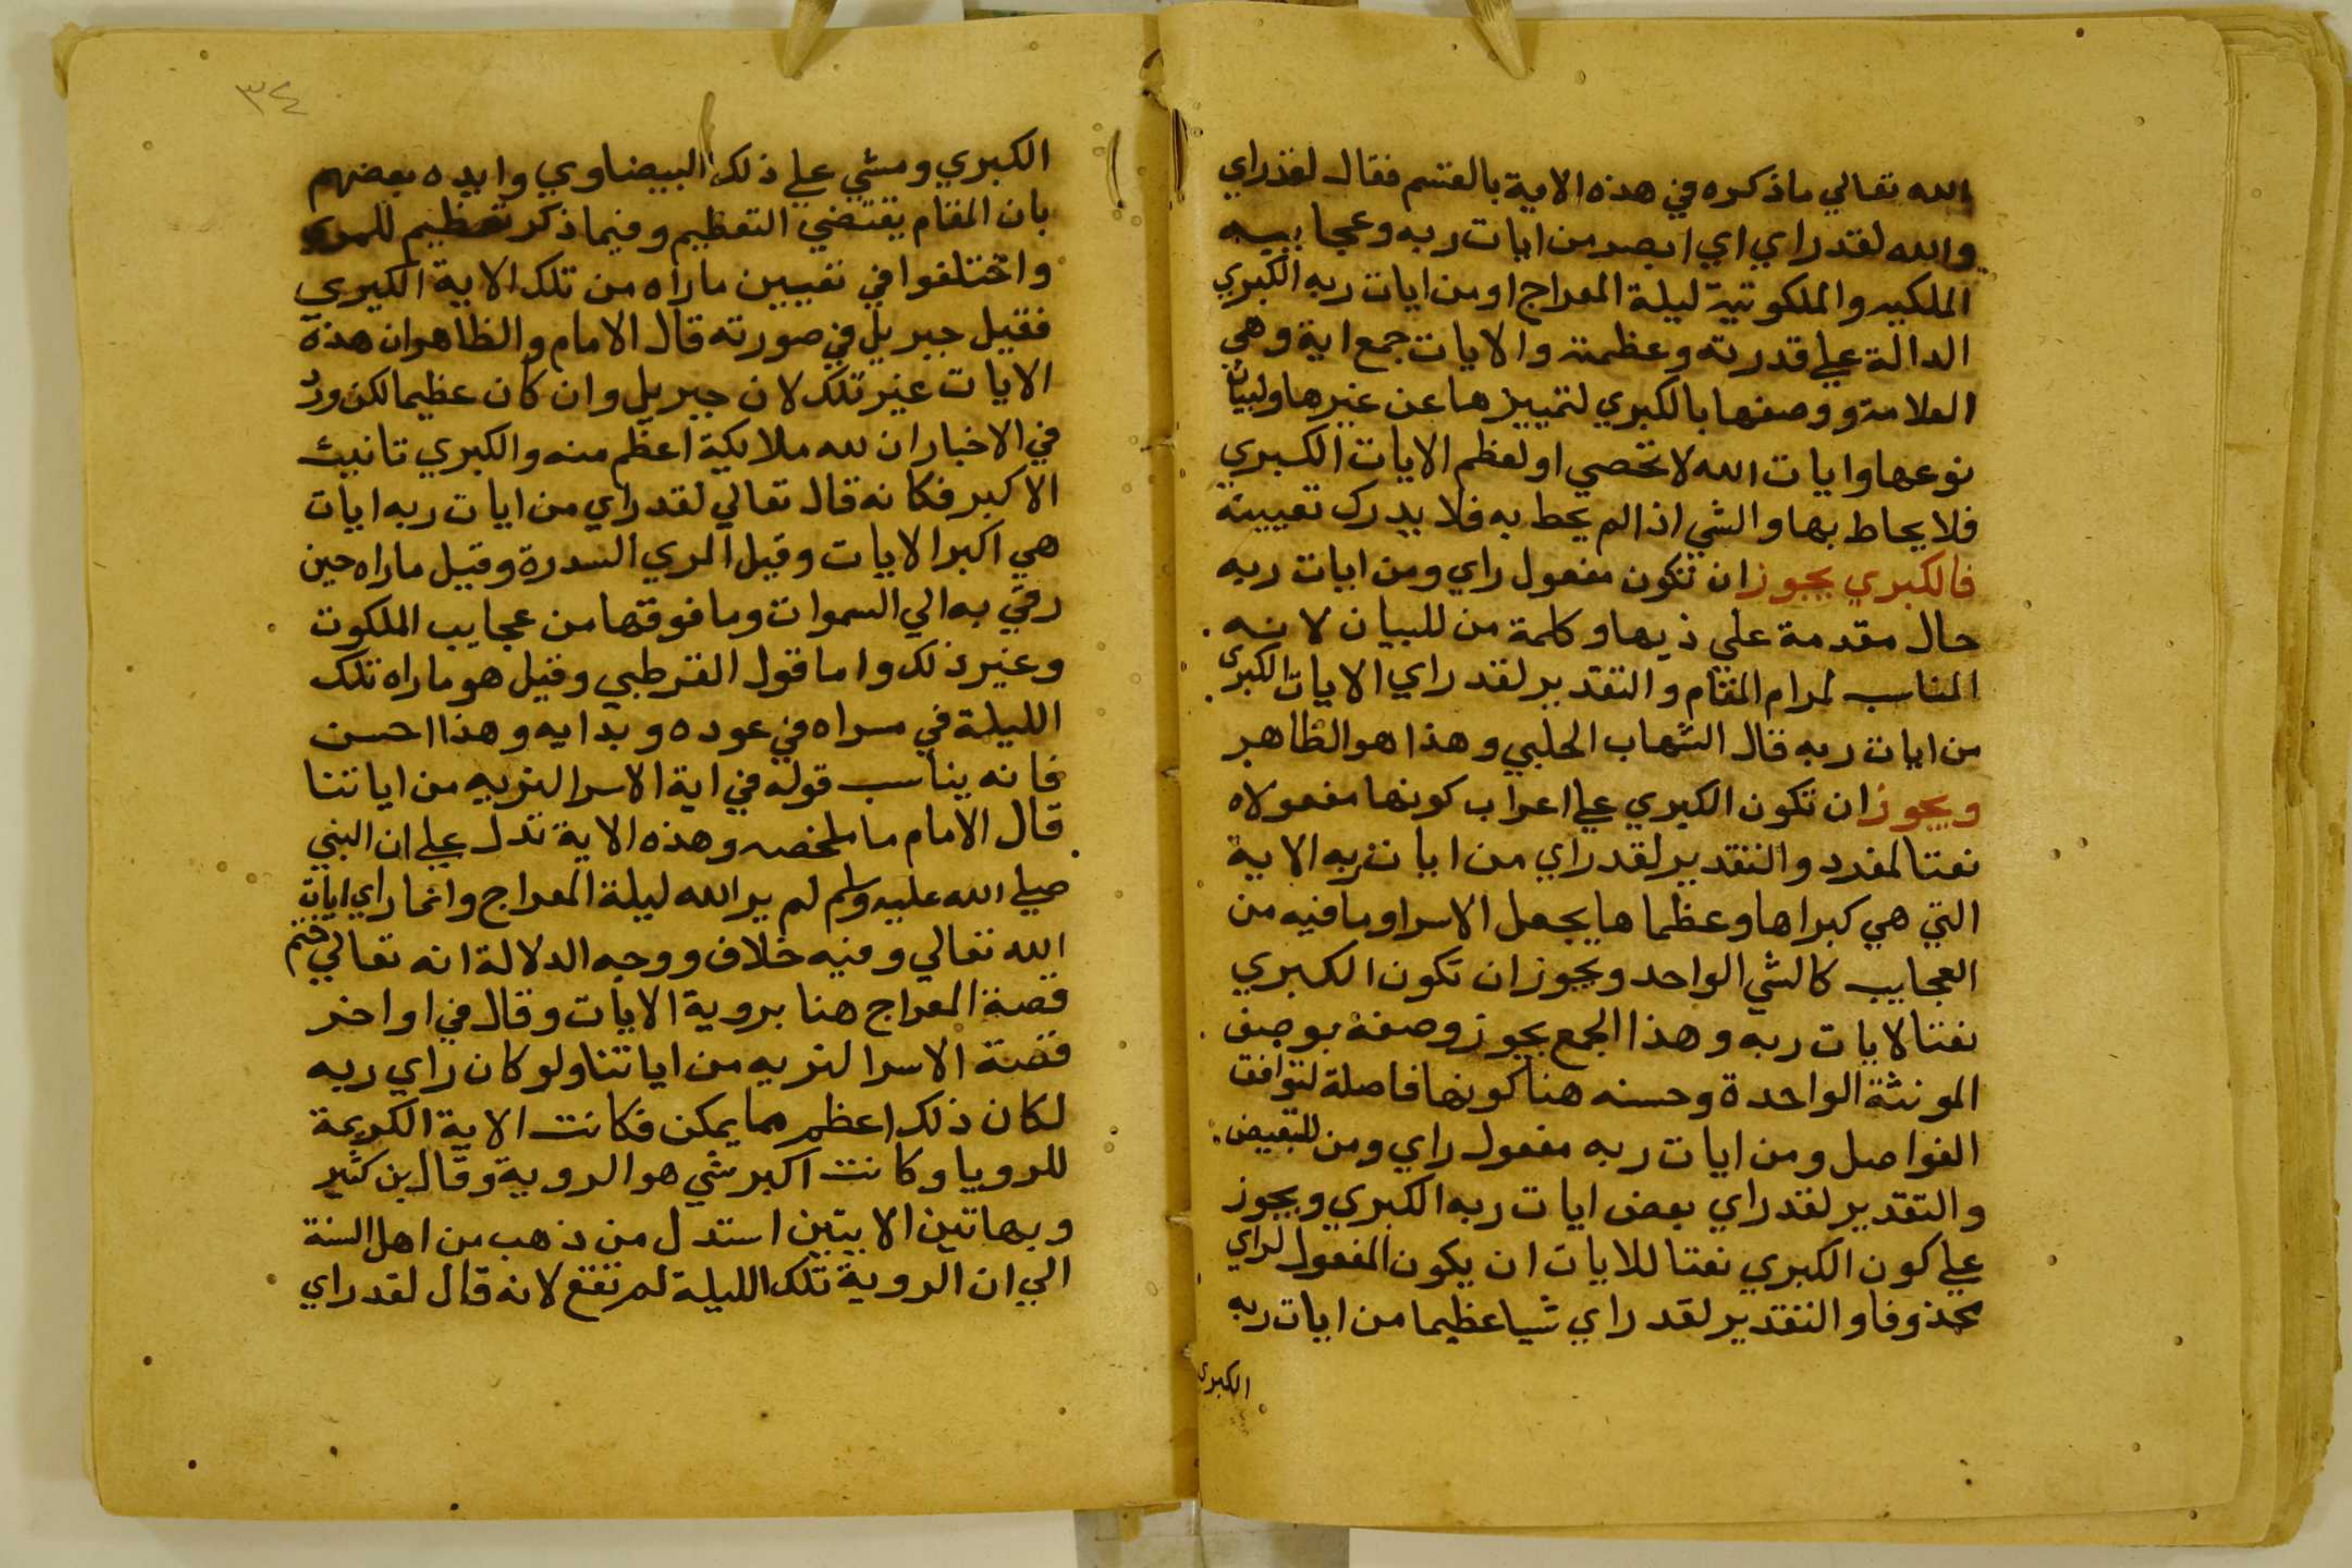 الله تعالي ماذكره في هذه الاية بالقسم فقال لقد راي
والله لقد راي اي ابصر من ايات ربه وعجايبه
الملكيه والملكوتية ليلة المعراج او من ايات ربه الكبري
الدالة علي قدرته وعظمته والايات جمع اية وهي
العلامة ووصفها بالكبري لتمييزها عن غيرها ولبيان
نوعها وايات الله لا تحصي او لعظم الايات الكبري
فلا يحاط بها والشي اذا لم يحط به فلا يدرك تعيينه
فالكبري يجوز ان تكون مفعول راي ومن ايات ربه
حال مقدمة علي ذيها وكلمة من للبيان لانه
المناسب لمرام المقام والتقدير لقد راي الايات الكبري
من ايات ربه قال الشهاب الحلبي وهذا هو الظاهر
ويجوز ان تكون الكبري علي اعراب كونها مفعولاه
نعتا لمفرد والتقدير لقد راي من ايات ربه الاية
التي هي كبراها وعظماها يجعل الاسرا وما فيه من
العجايب كالشي الواحد ويجوز ان تكون الكبري
نعتا لايات ربه وهذا الجمع يجوز وصفه بوصف
المونثة الواحدة وحسنه هنا كونها فاصلة لتوافق
الفواصل ومن ايات ربه مفعول راي ومن للتبعيض
والتقدير لقد راي بعض ايات ربه الكبري ويجوز
علي كون الكبري نعتا للايات ان يكون المفعول لراي
محذوفا والتقدير لقد راي شيا عظيما من ايات ربه
الكبري
٣٤
الكبري ومشي علي ذلك البيضاوي وايده بعضهم
بان المقام يقتضي التعظيم وفيما ذكر تعظيم
واختلفوا في تعيين ماراه من تلك الاية الكبري
فقيل جبريل في صورته قال الامام والظاهر ان هذه
الايات غير تلك لان جبريل وان كان عظيما لكن ورد
في الاخبار ان لله ملايكة اعظم منه والكبري تانيث
الاكبر فكانه قال تعالي لقد راي من ايات ربه ايات
هي اكبر الايات وقيل المري السدرة وقيل ماراه حين
رقي به الي السموات وما فوقها من عجايب الملكوت
وغير ذلك واما قول القرطبي وقيل هو ماراه تلك
الليلة في مسراه في عوده وبدايه وهذا احسن
فانه يناسب قوله في اية الاسرا لنريه من اياتنا
قال الامام ما ملخصه وهذه الاية تدل علي ان النبي
صلي الله عليه وسلم لم ير الله ليلة المعراج وانما راي ايات
الله تعالي وفيه خلاف ووجه الدلالة انه تعالي ختم
قصة المعراج هنا بروية الايات وقال في اواخر
قصة الاسرا لنريه من اياتنا ولو كان راي ربه
لكان ذلك اعظم مما يمكن فكانت الاية الكريمة
للرويا وكانت اكبر شي هو الروية وقال بن كثير
وبهاتين الايتين استدل من ذهب من اهل السنة
الي ان الروية تلك الليلة لم تقع لانه قال لقد راي